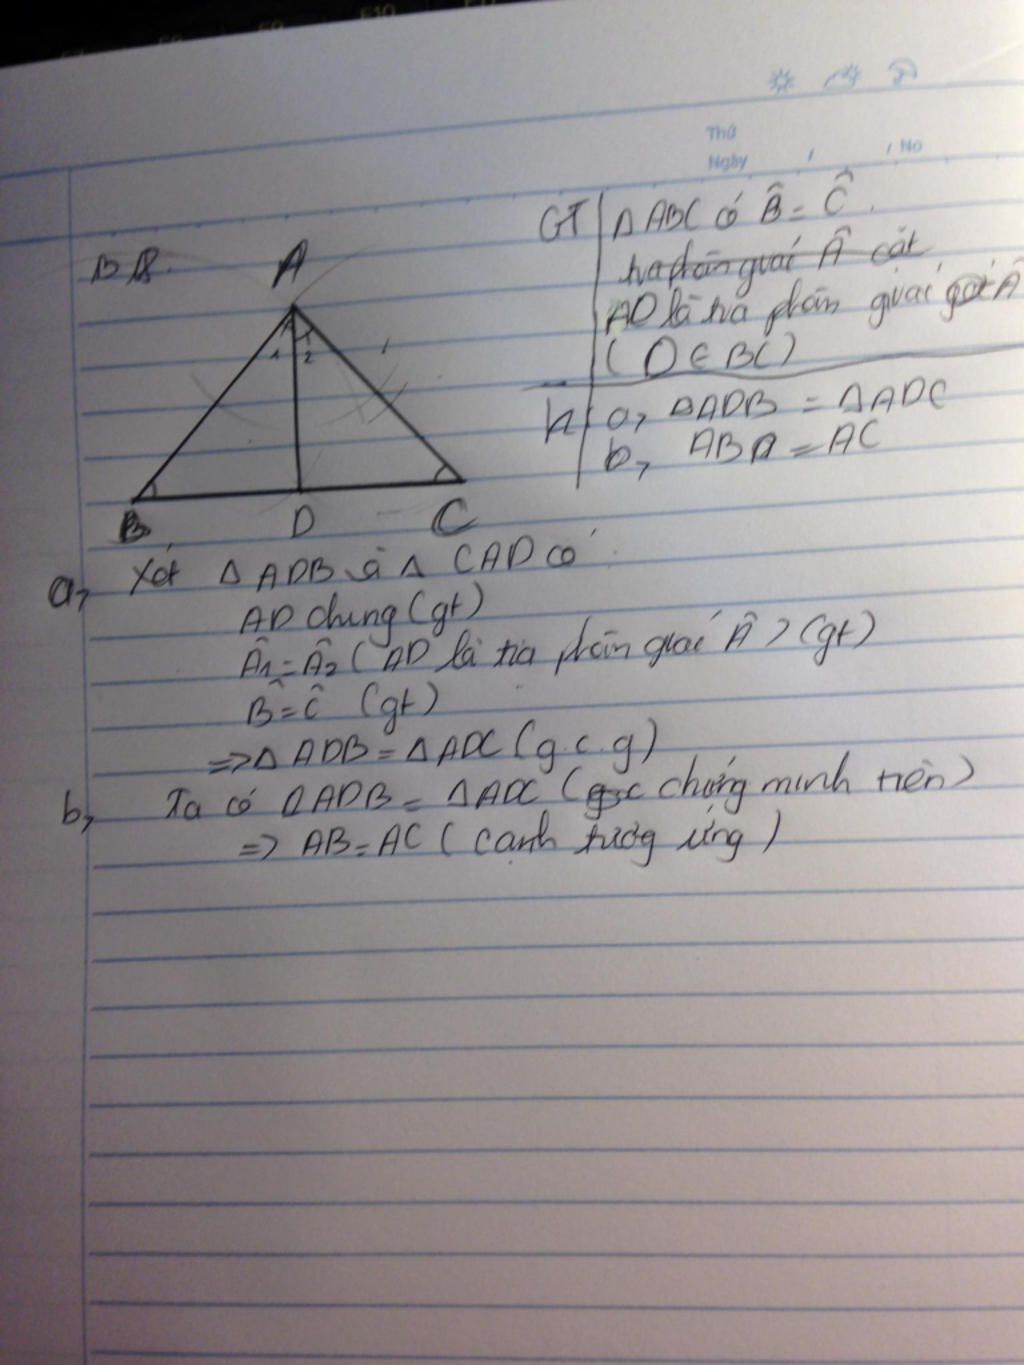 Thứ
Ngày / / No
GT ΔABC có B̂ = Ĉ.
tia phân giác Â cắt
AD là tia phân giác góc Â
(D ∈ BC)
A
1 2
B D C
a, ΔADB = ΔADC
b, AB = AC
a, Xét ΔADB và Δ CAD có:
AD chung (gt)
Â1 = Â2 (AD là tia phân giác Â) (gt)
B̂ = Ĉ (gt)
=> Δ ADB = ΔADC (g.c.g)
b, Ta có ΔADB = ΔADC (chứng minh trên)
=> AB = AC (cạnh tương ứng)